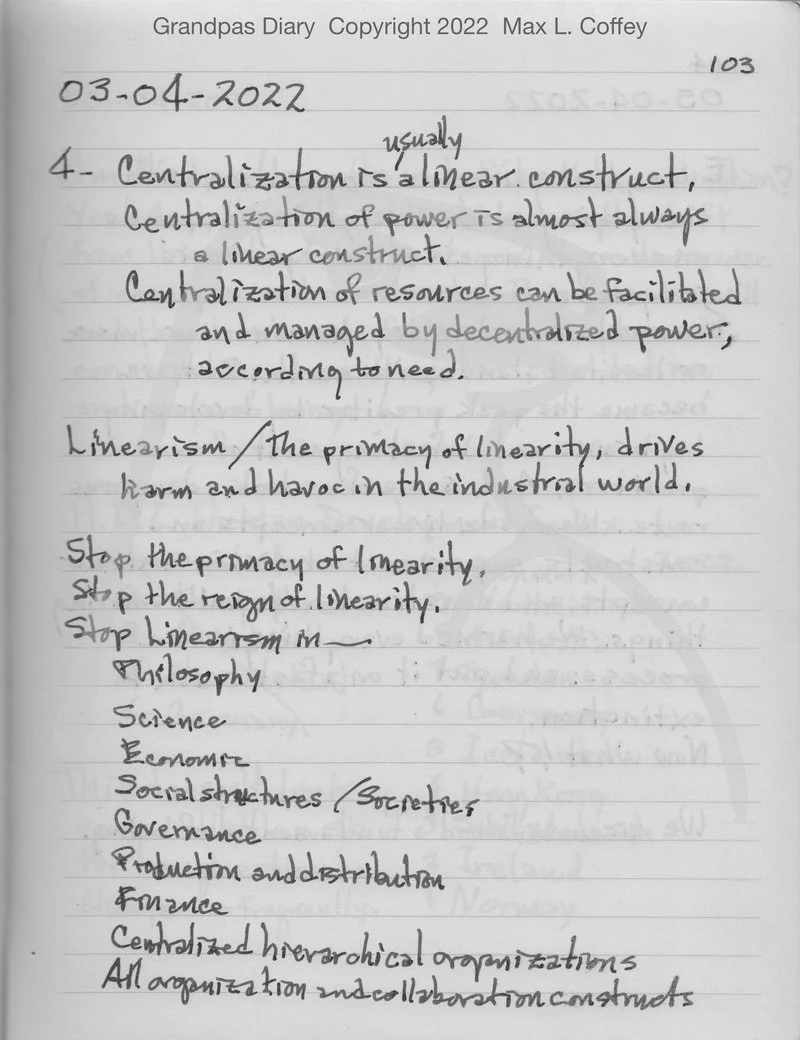 Grandpas Diary Copyright 2022 Max L. Coffey
103
03-04-2022
usually
4- Centralization is a linear construct,
Centralization of power is almost always
a linear construct.
Centralization of resources can be facilitated
and managed by decentralized power,
according to need.
Linearism/the primacy of linearity, drives
harm and havoc in the industrial world.
Stop the primacy of linearity.
Stop the reign of linearity.
Stop Linearism in—
Philosophy
Science
Economic
Social structures / Societies
Governance
Production and distribution
Finance
Centralized hierarchical organizations
All organization and collaboration constructs